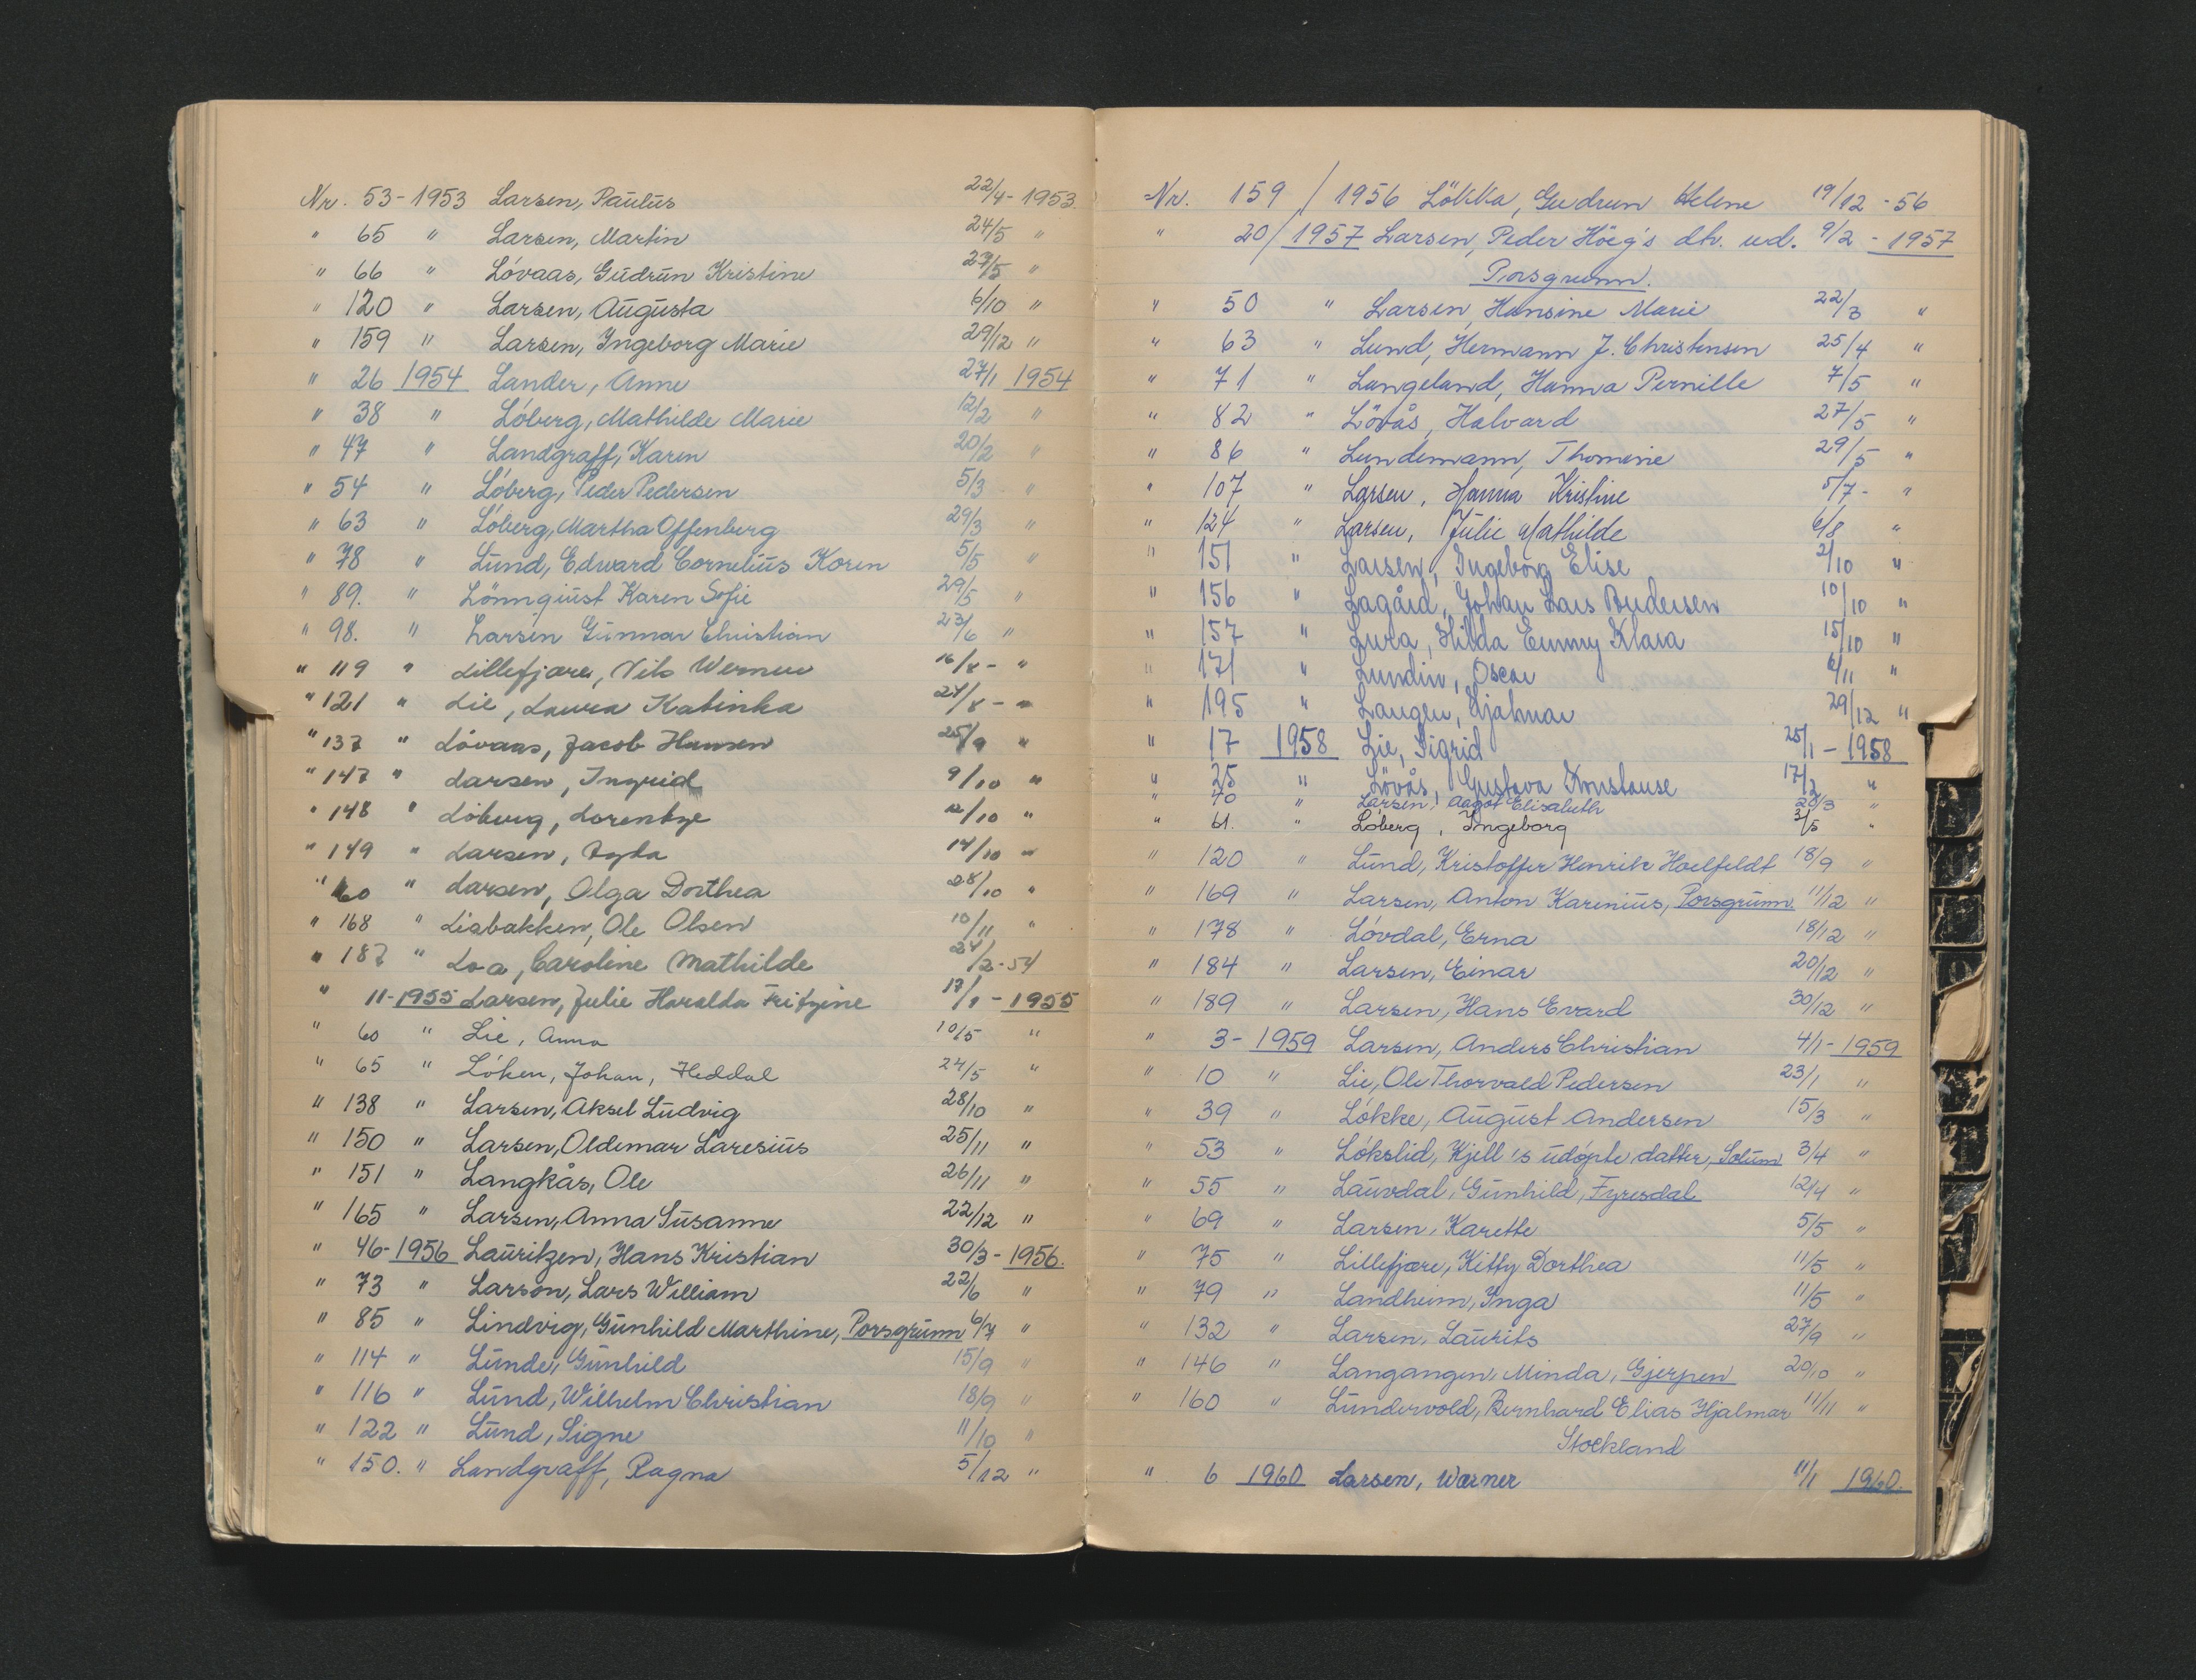 Nr. 53-1953 Larsen, Paulus 22/4-1953.
" 65 " Larsen, Martin 24/5 "
" 66 " Lövaas, Gudrun Kristine 27/5 "
" 120 " Larsen, Augusta 6/10 "
" 159 " Larsen, Ingeborg Marie 29/12 "
" 26 1954 Lander, Anne 27/1 1954
" 38 " Löberg, Mathilde Marie 12/2 "
" 47 " Landgraff, Karen 20/2 "
" 54 " Löberg, Peder Pedersen 5/3 "
" 63 " Löberg, Martha Offenberg 29/3 "
" 78 " Lund, Edward Cornelius Koren 5/5 "
" 89. " Lönnqiust Karen Sofie 29/5 "
" 98. " Larsen Gunnar Christian 23/6 "
" 119 " Lillefjære, Nils Werner 16/8 - "
" 121 " Lie, Laura Katinka 24/8 - "
" 137 " Lövaas, Jacob Hansen 25/9 "
" 147 " Larsen, Ingrid 9/10 "
" 148 " Löberg, Lorentze 12/10 "
" 149 " Larsen, 14/10 "
" 60 " Larsen, Olga Dorthea 28/10 "
" 168 " Lisbakken, Ole Olsen 10/11 "
" 187 " Loa, Caroline Mathilde 24/12-54
" 11-1955 Larsen, Julie Haralda Fritzine 17/1 - 1955
" 60 " Lie, Anna 10/5 "
" 65 " Löken, Johan, Heddal 24/5 "
" 138 " Larsen, Aksel Ludvig 28/10 "
" 150 " Larsen, Oldemar Laresius 25/11 "
" 151 " Langkås, Ole 26/11 "
" 165 " Larsen, Anna Susanne 22/12 "
" 46-1956 Lauritzen, Hans Kristian 30/3-1956.
" 73 " Larson, Lars William 22/6 "
" 85 " Lindvig, Gunhild Marthine, Porsgrunn 6/7 "
" 114 " Lunde, Gunhild 15/9 "
" 116 " Lund, Wilhelm Christian 18/9 "
" 122 " Lund, Signe 11/10 "
" 150. " Landgraff, Ragna 5/12 "
Nr. 159 / 1956 Lökka, Gudrun Helene 19/12 - 56
" 20/1957 Larsen, Peder Höeg's dh. ud. 9/2 - 1957
Porsgrunn.
" 50 " Larsen, Hansine Marie 22/3 "
" 63 " Lund, Hermann J. Christensen 25/4 "
" 71 " Langeland, Hanna Pernille 7/5 "
" 82 " Lövås, Halvard 27/5 "
" 86 " Lundemann, Thomine 29/5 "
" 107 " Larsen, Hanna Kristine 5/7 - "
" 124 " Larsen, Julie Mathilde 6/8 "
" 151 " Larsen, Ingeborg Elise 2/10 "
" 156 " Lagård, Johan Lars Andersen 10/10 "
" 157 " Lura, Hilda Emmy Klara 15/10 "
" 171 " Lundin, Oscar 6/11 "
" 195 " Langen, Hjalmar 29/12 "
" 17 1958 Lie, Sigrid 25/1 - 1958
" 25 " Lövås, Gustava Konstanse 17/2 "
" 40 " Larsen, Aagot Elisabeth 28/3 "
" 61. " Löberg, Ingeborg 3/5 "
" 120 " Lund, Kristoffer Henrik Hoelfeldt 18/9 "
" 169 " Larsen, Anton Karenius, Porsgrunn. 11/12 "
" 178 " Lövdal, Erna 18/12 "
" 184 " Larsen, Einar 20/12 "
" 189 " Larsen, Hans Evard 30/12 "
" 3-1959 Larsen, Anders Christian 4/1-1959
" 10 " Lie, Ole Thorvald Pedersen 23/1 "
" 39 " Lökke, August Andersen 15/3 "
" 53 " Lökslid, Kjell's udöpte datter, Solum 3/4 "
" 55 " Lauvdal, Gunhild, Fyresdal 12/4 "
" 69 " Larsen, Karette 5/5 "
" 75 " Lillefjære, Kitty Dorthea 11/5 "
" 79 " Landheim, Inga 11/5 "
" 132 " Larsen, Laurits 27/9 "
" 146 " Langangen, Minda, Gjerpen 20/10 "
" 160 " Lundervold, Bernhard Elias Hjalmar 11/11 "
Stockland
" 6 1960 Larsen, Werner 11/1 1960.